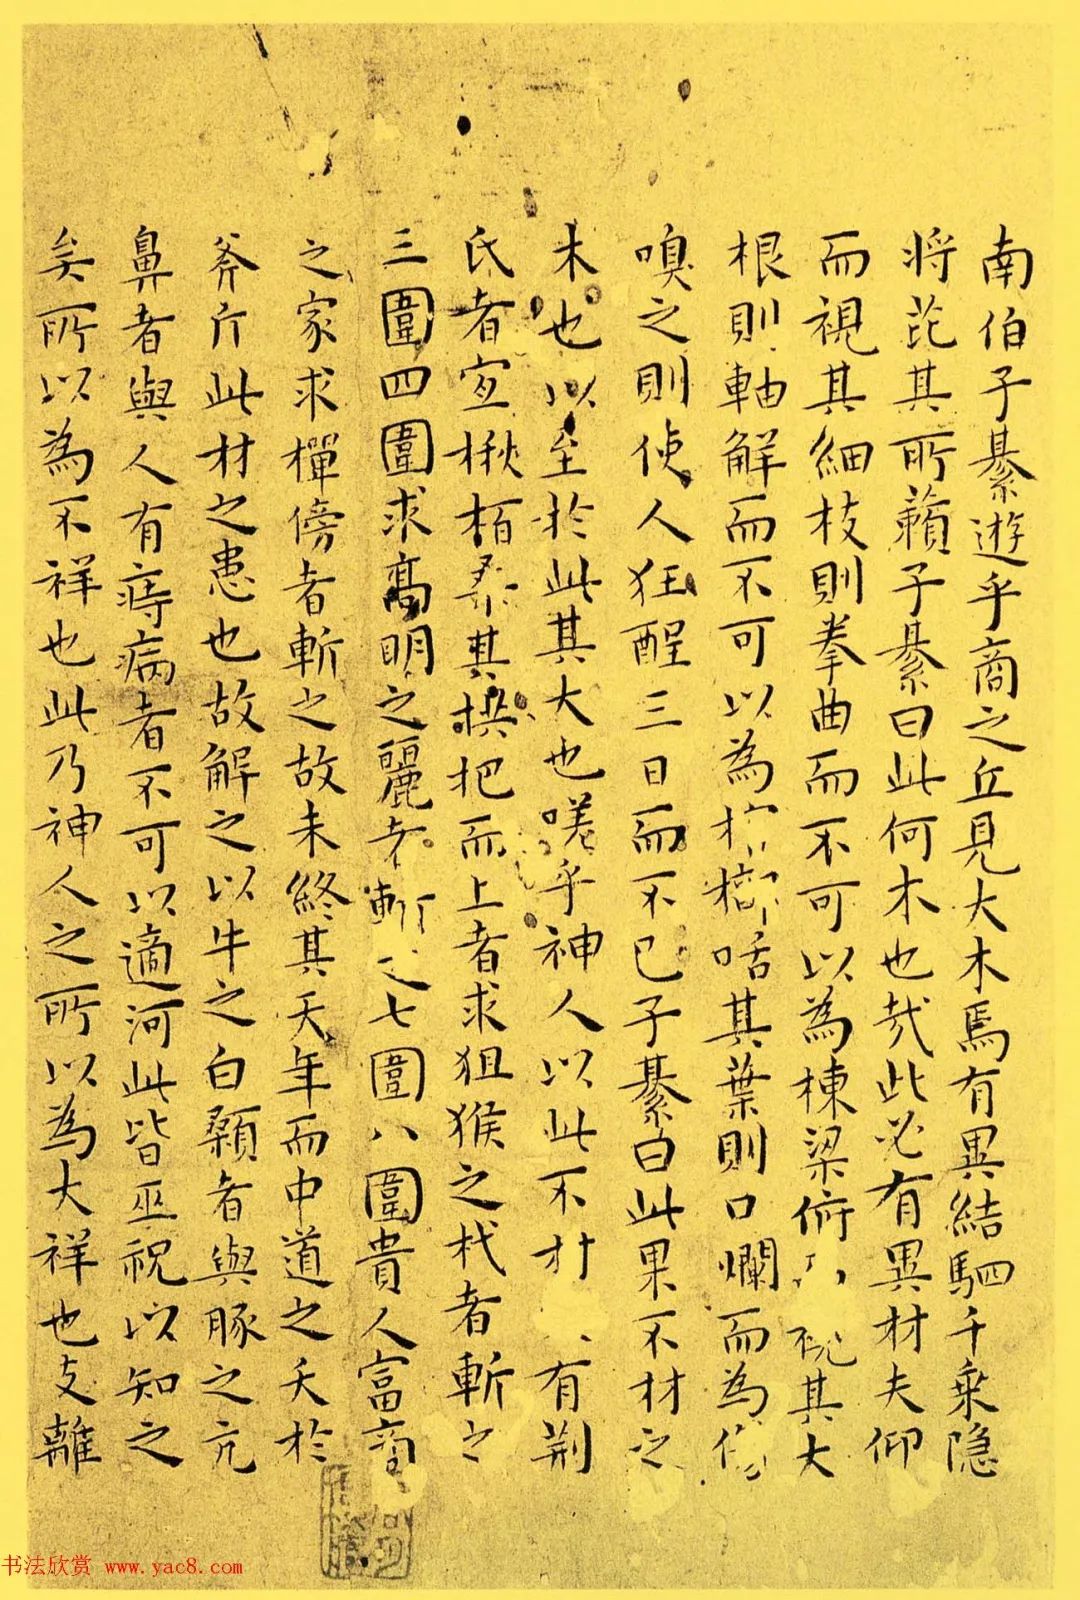 南伯子綦遊乎商之丘見大木焉有異結駟千乘隱
將芘其所藾子綦曰此何木也哉此必有異材夫仰
而視其細枝則拳曲而不可以為棟梁俯視其大
根則軸解而不可以為棺槨咶其葉則口爛而為傷
嗅之則使人狂酲三日而不已子綦曰此果不材之
木也以至於此其大也嗟乎神人以此不材有荊
氏者宜楸栢桑其拱把而上者求狙猴之杙者斬之
三圍四圍求高明之麗者斬之七圍八圍貴人富商
之家求樿傍者斬之故未終其天年而中道之夭於
斧斤此材之患也故解之以牛之白顙者與豚之亢
鼻者與人有痔病者不可以適河此皆巫祝以知之
矣所以為不祥也此乃神人之所以為大祥也支離
书法欣赏 www.yac8.com